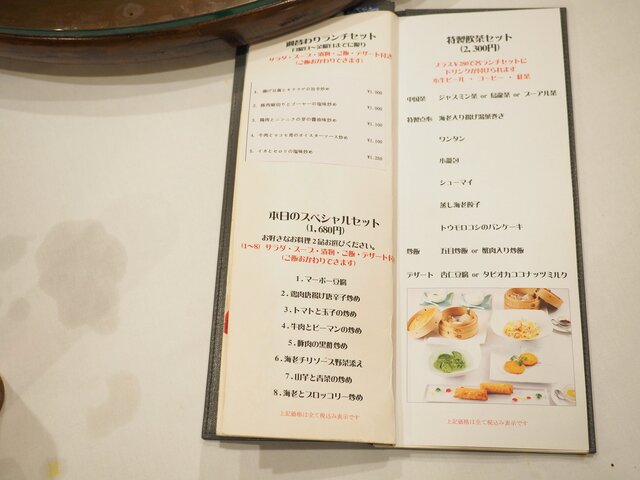 週替わりランチセット
(月曜日~金曜日までに限り)
サラダ・スープ・漬物・ご飯・デザート付き
(ご飯おかわりできます)
1. 揚げ豆腐とキクラゲの旨辛炒め ¥1,000
2. 豚肉細切りとゴーヤーの塩味炒め ¥1,000
3. 鶏肉とニンニクの芽の醤油味炒め ¥1,100
4. 牛肉とマコモ茸のオイスターソース炒め ¥1,100
5. イカとセロリの塩味炒め ¥1,200
本日のスペシャルセット
(1,680円)
お好きなお料理2品お選びください。
(1~8) サラダ・スープ・漬物・ご飯・デザート付
(ご飯おかわりできます)
1.マーボー豆腐
2.鶏肉唐揚げ唐辛子炒め
3.トマトと玉子の炒め
4.牛肉とピーマンの炒め
5.豚肉の黒酢炒め
6.海老チリソース野菜添え
7.山芋と青菜の炒め
8.海老とブロッコリー炒め
上記価格は全て税込み表示です
特製飲茶セット
(2,300円)
プラス¥200で各ランチセットに
ドリンクが付けられます
小生ビール ・ コーヒー ・ 紅茶
中国茶 ジャスミン茶 or 烏龍茶 or プーアル茶
特製点心 海老入り揚げ湯葉巻き
ワンタン
小籠包
シューマイ
蒸し海老餃子
トウモロコシのパンケーキ
炒飯 五目炒飯 or 蟹肉入り炒飯
デザート 杏仁豆腐 or タピオカココナッツミルク
上記価格は全て税込み表示です